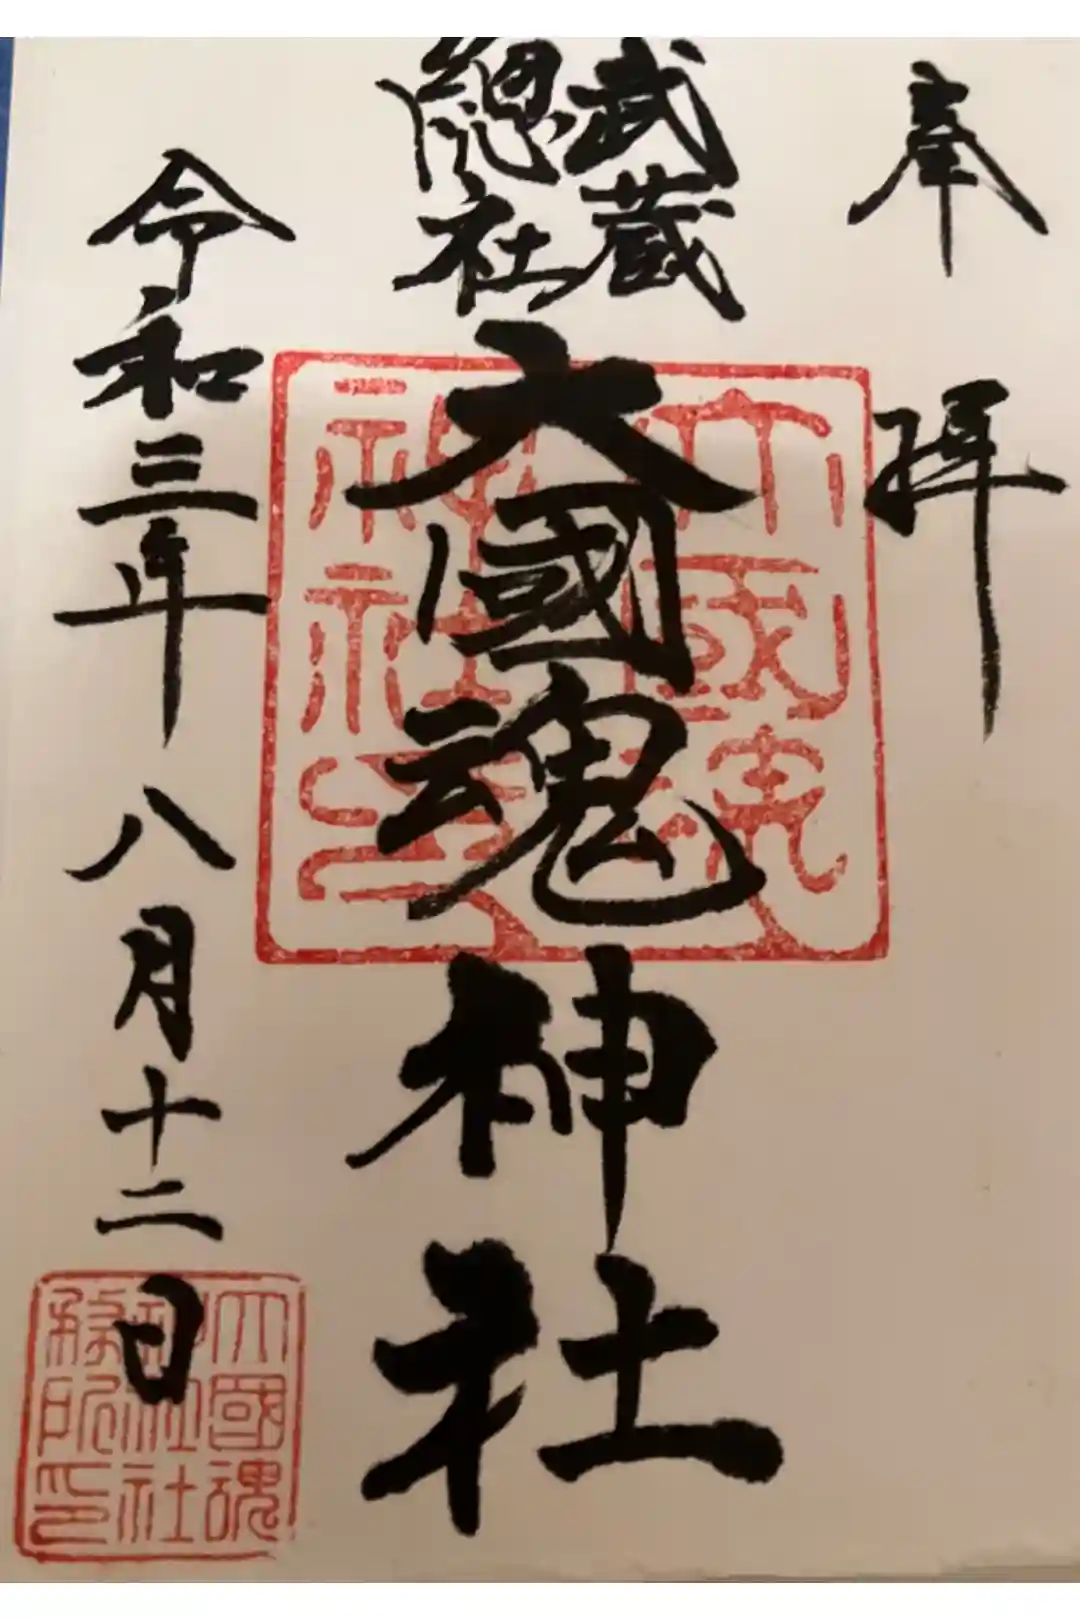 奉拝
武蔵
總社
大國魂神社
令和三年八月十二日
大國魂
神社之印
大國魂
神社社
務所印